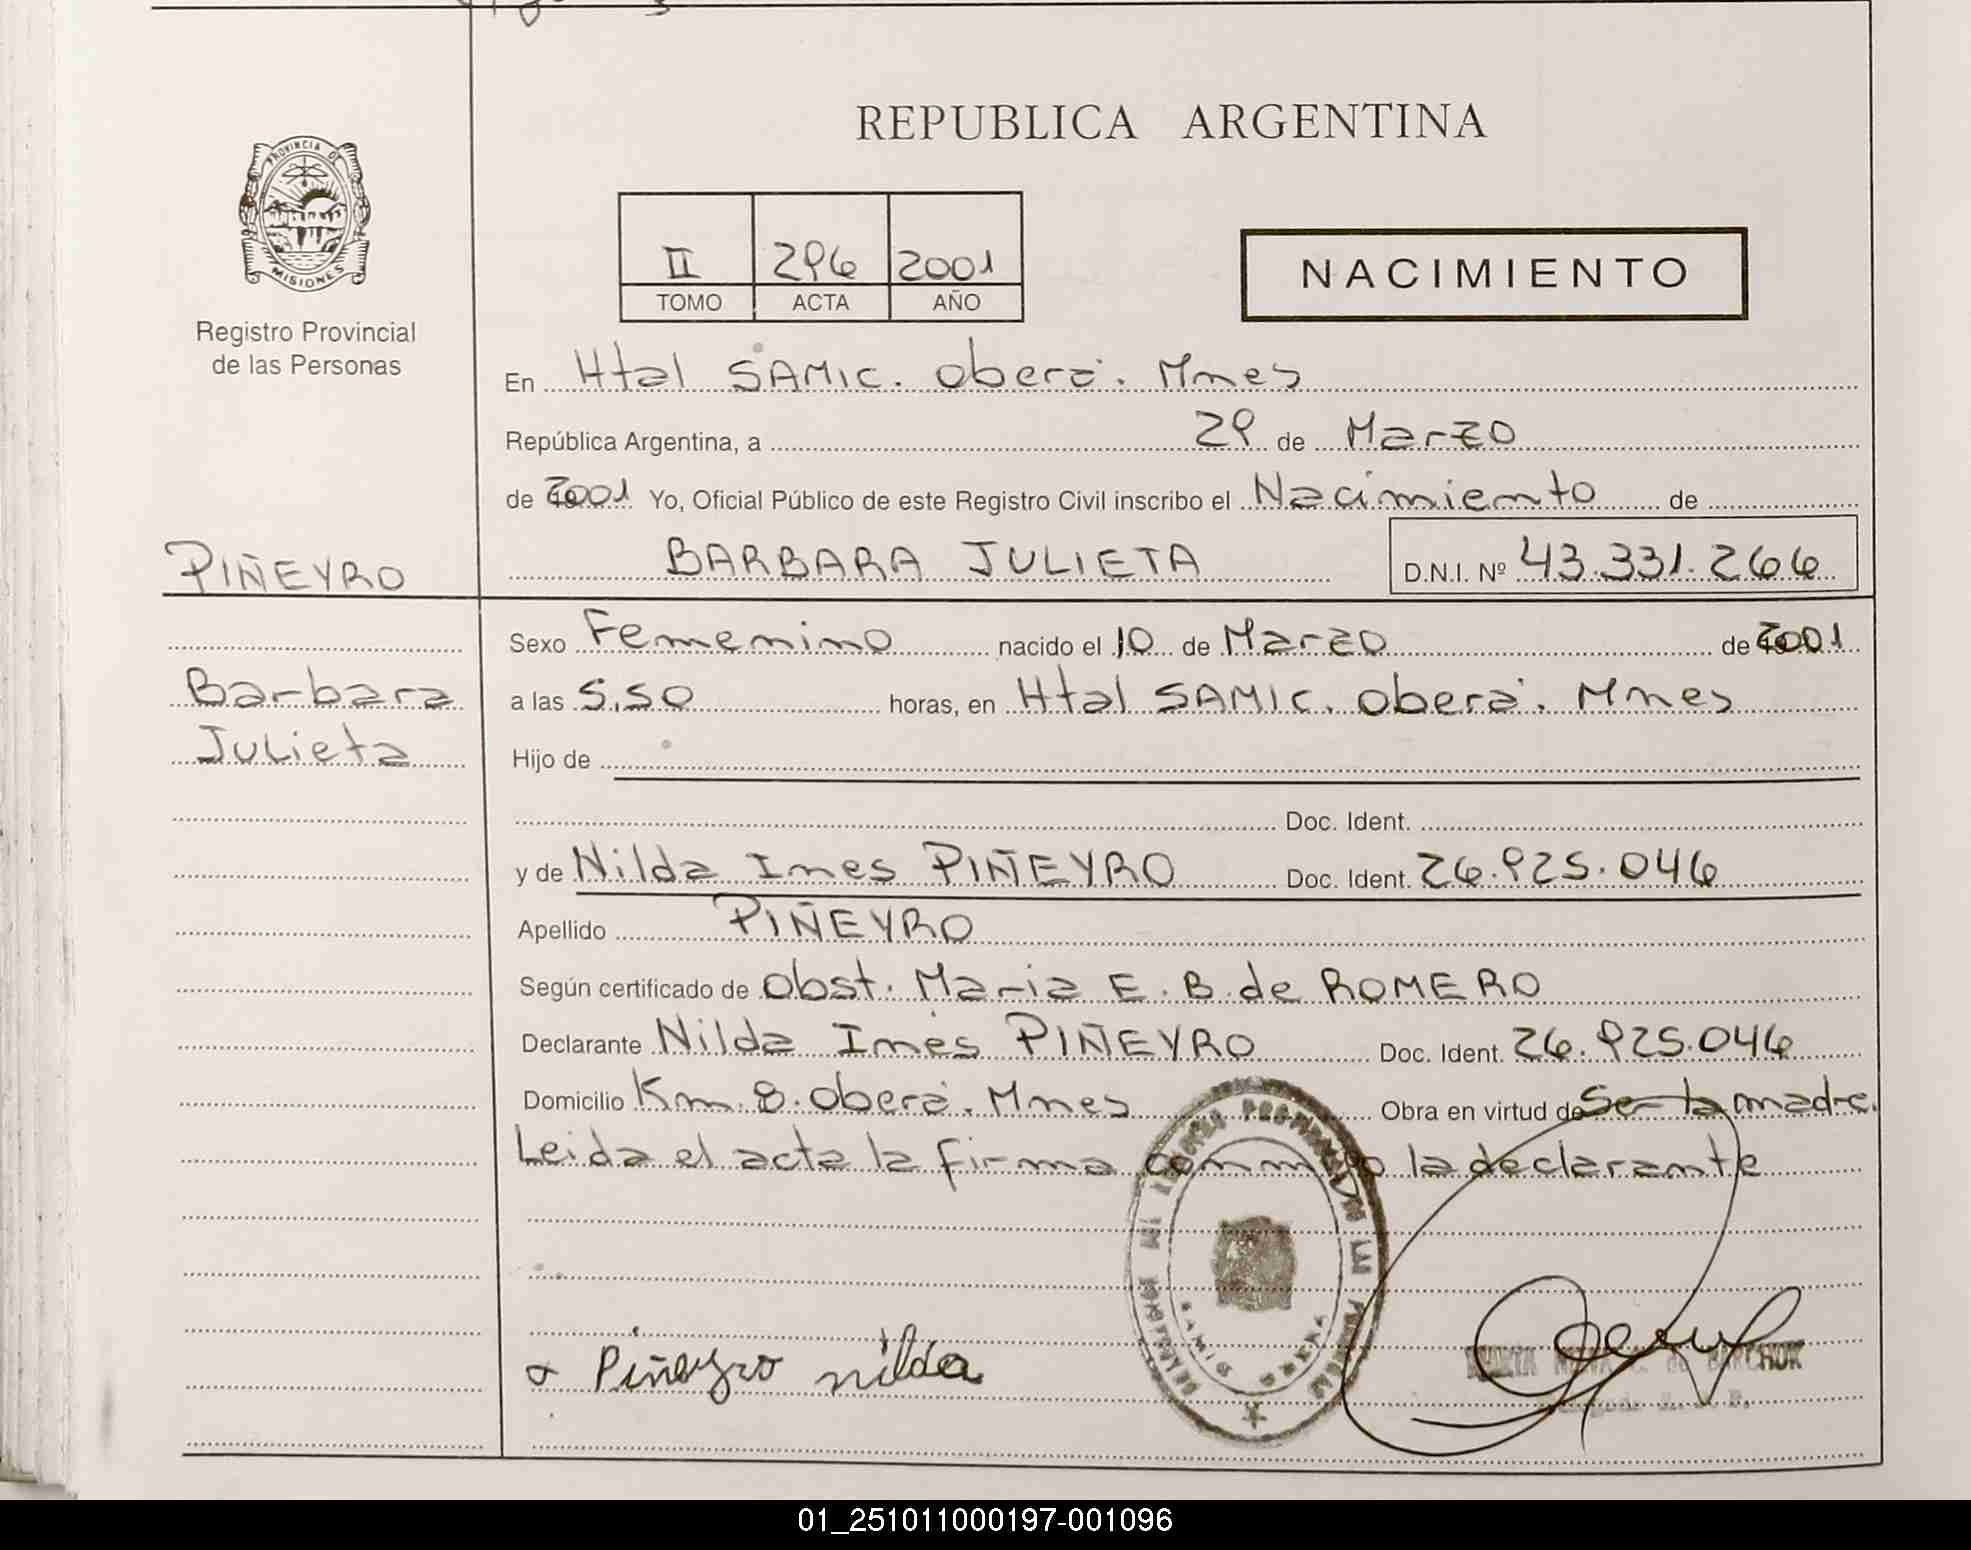 REPUBLICA ARGENTINA
PROVINCIA DE
MISIONES
Registro Provincial
de las Personas
II 296 2001
TOMO ACTA AÑO
NACIMIENTO
En Htal SAMIC. Oberá. Mnes
República Argentina, a 29 de Marzo
de 2001 Yo, Oficial Público de este Registro Civil inscribo el Nacimiento de
PIÑEYRO
BARBARA JULIETA D.N.I. Nº 43.331.266
Sexo Femenino nacido el 10 de Marzo de 2001
Barbara
Julieta
a las 5,50 horas, en Htal SAMIC. Oberá. Mnes
Hijo de
Doc. Ident.
y de Nilda Ines PIÑEYRO Doc. Ident. 26.925.046
Apellido PIÑEYRO
Según certificado de Obst. Maria E. B. de ROMERO
Declarante Nilda Inés PIÑEYRO Doc. Ident. 26.925.046
Domicilio Km. 8. Oberá. Mnes Obra en virtud de Ser la madre.
Leida el acta la firma conmigo la declarante
Piñeyro nilda
01_251011000197-001096